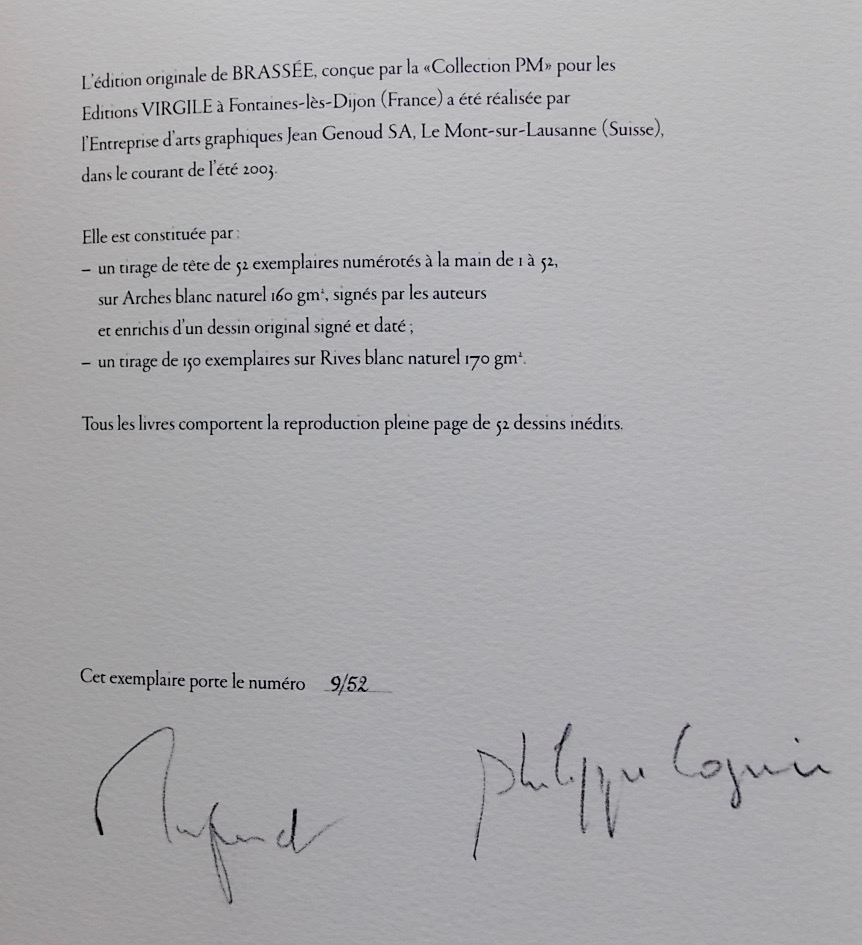 L'édition originale de BRASSÉE, conçue par la «Collection PM» pour les
Editions VIRGILE à Fontaines-lès-Dijon (France) a été réalisée par
l'Entreprise d'arts graphiques Jean Genoud SA, Le Mont-sur-Lausanne (Suisse),
dans le courant de l'été 2003.
Elle est constituée par :
– un tirage de tête de 52 exemplaires numérotés à la main de 1 à 52,
sur Arches blanc naturel 160 gm², signés par les auteurs
et enrichis d'un dessin original signé et daté ;
– un tirage de 150 exemplaires sur Rives blanc naturel 170 gm².
Tous les livres comportent la reproduction pleine page de 52 dessins inédits.
Cet exemplaire porte le numéro 9/52
Philippe